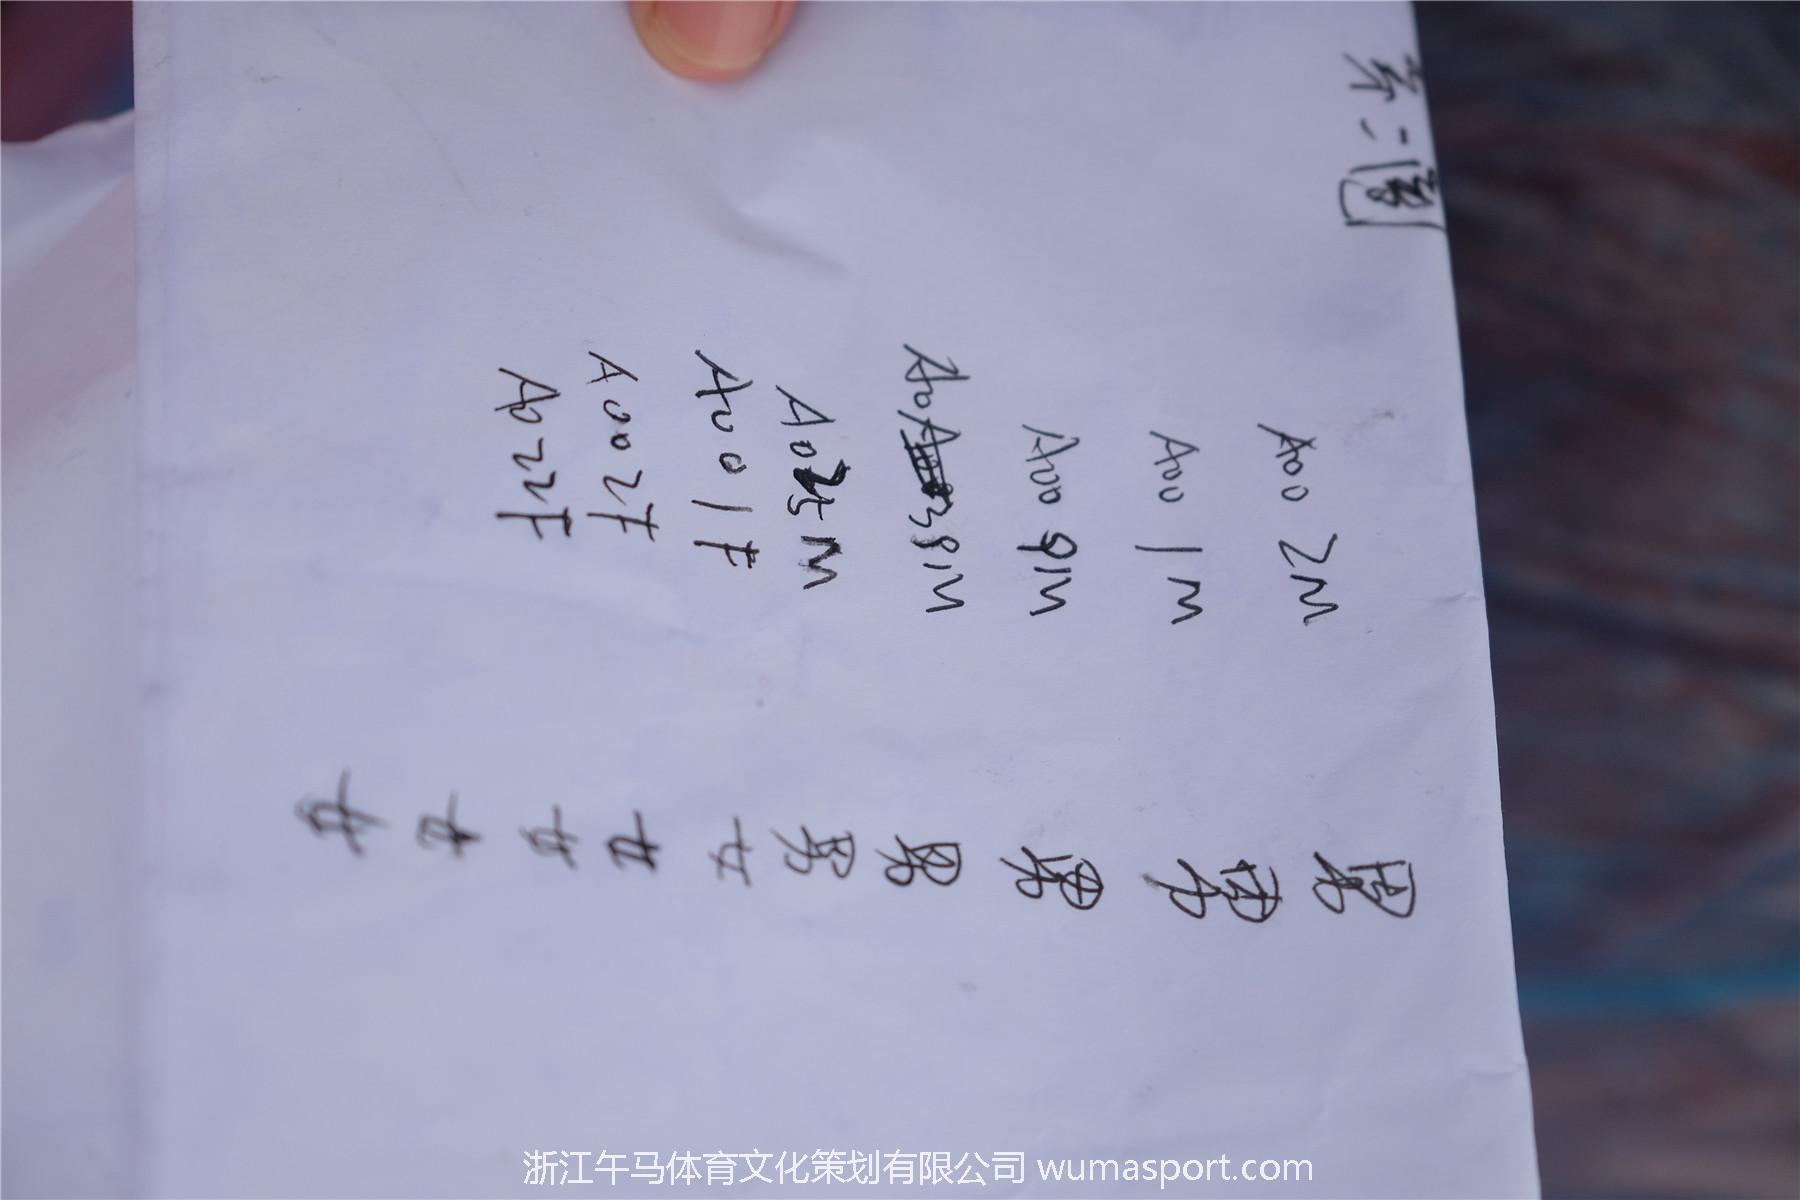 第二圈
A002M 男
A001M 男
A009M 男
男
男
A001F 女
A002F 女
A022F 女
女
女
浙江午马体育文化策划有限公司 wumasport.com